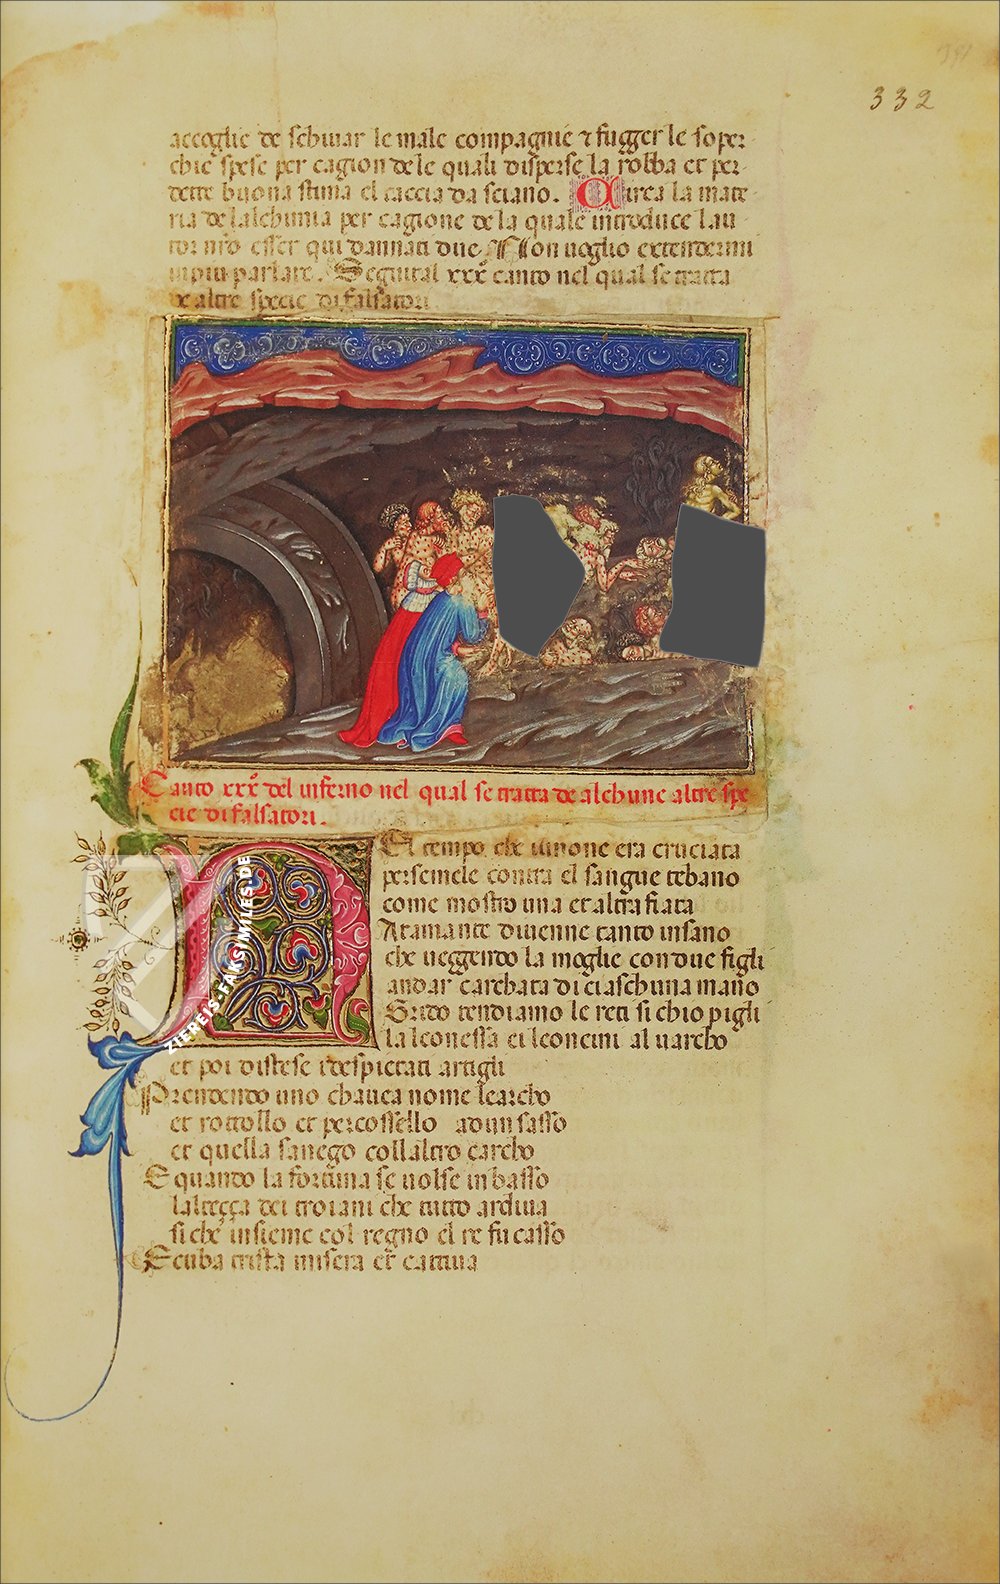 332
accoglie de schiuar le male compagnie ⁊ fugger le soper
chie spese per cagion de le quali disperse la robba et per
dette buona fama el caccia da sciano. Circa la mate
ria de lalchimia per cagione de la quale introduce lau
tor nro esser qui dannati due Non uoglio extendermi
in piu parlare. Seguita l xxx canto nel qual se tratta
de altre specie di falsatori
Canto xxx del inferno nel qual se tratta de alchune altre spe
cie di falsatori.
NEl tempo che iunone era cruciata
per semele contra el sangue tebano
come mostro una et altra fiata
Atamante diuenne tanto insano
che ueggendo la moglie con due figli
andar carchata di ciaschuna mano
Grido tendiamo le reti si chio pigli
la leonessa ei leoncini al uarcho
et poi distese i despiettati artigli
Prendendo uno chauea nome learcho
et rotollo et percossello ad un sasso
et quella sanego collaltro carcho
E quando la fortuna se uolse in basso
lalteçça dei troiani che tutto ardiua
si che insieme col regno el re fu casso
Ecuba trista misera et cattiua
ZIEREIS-FAKSIMILES.DE